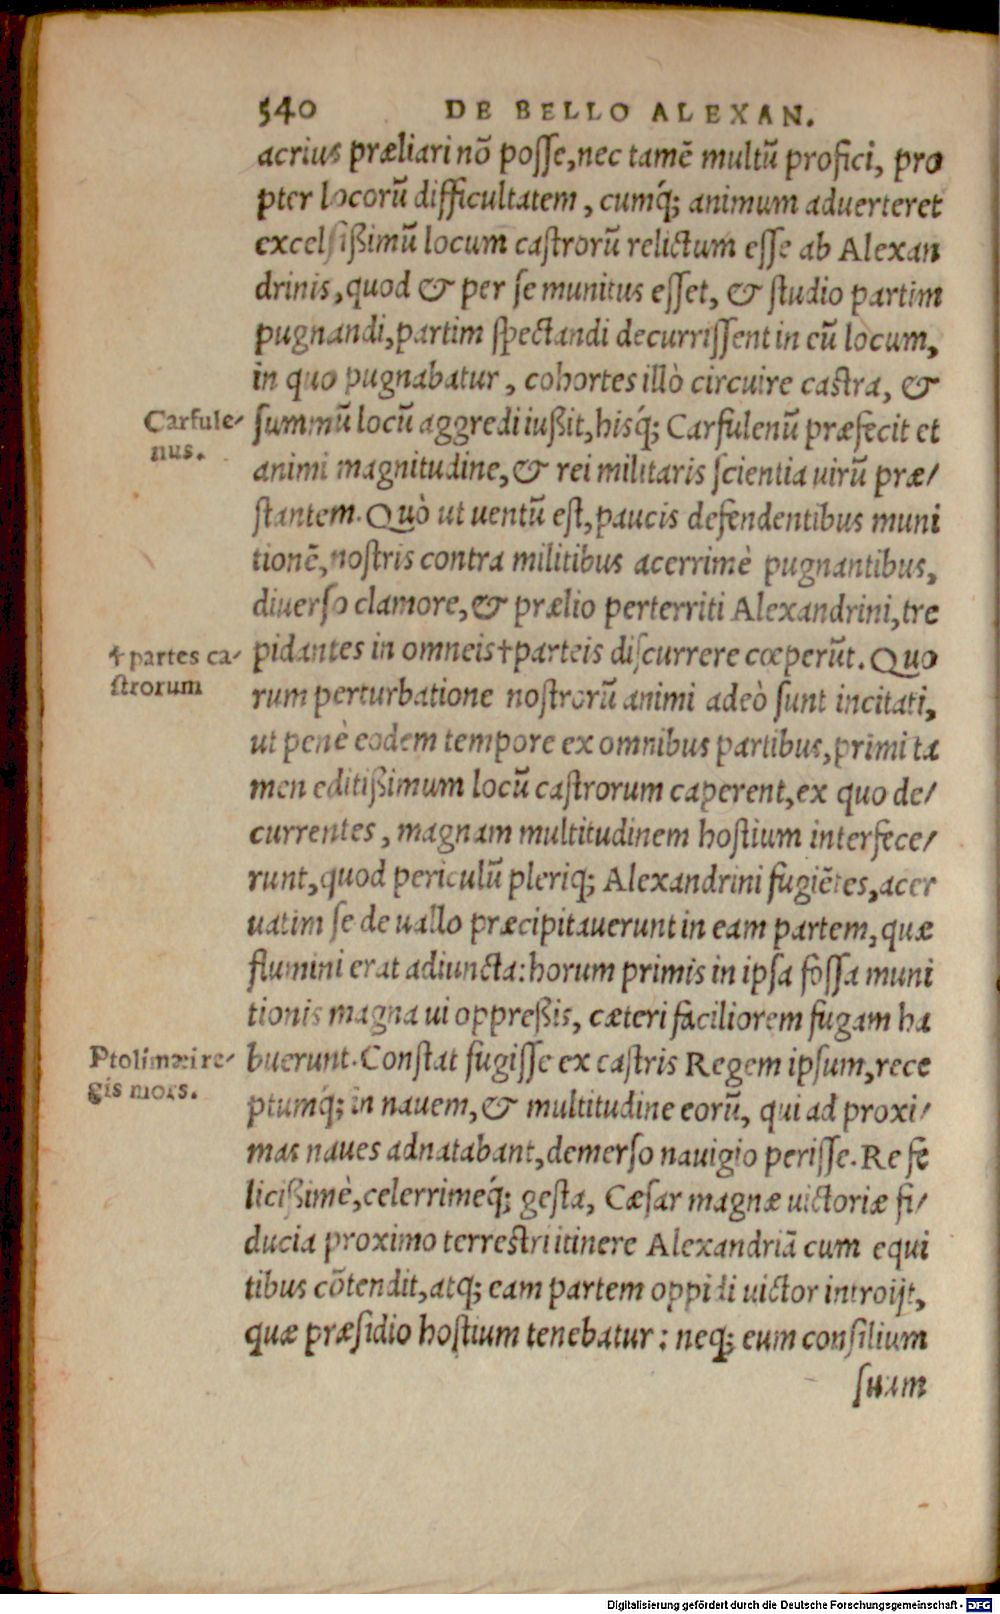 540 DE BELLO ALEXAN.
acrius præliari nō posse, nec tamē multū profici, pro
pter locorū difficultatem, cumq́; animum aduerteret
excelsißimū locum castrorū relictum esse ab Alexan
drinis, quod & per se munitus esset, & studio partim
pugnandi, partim spectandi decurrissent in eū locum,
in quo pugnabatur, cohortes illò circuire castra, &
Carfule-
nus.
summū locū aggredi iußit, hisq́; Carfulenū præfecit et
animi magnitudine, & rei militaris scientia uirū præ-
stantem. Quò ut uentū est, paucis defendentibus muni
tionē, nostris contra militibus acerrimè pugnantibus,
diuerso clamore, & prælio perterriti Alexandrini, tre
✝ partes ca-
strorum
pidantes in omneis ✝ parteis discurrere cœperūt. Quo
rum perturbatione nostrorū animi adeò sunt incitati,
ut penè eodem tempore ex omnibus partibus, primi ta
men editißimum locū castrorum caperent, ex quo de-
currentes, magnam multitudinem hostium interfece-
runt, quod periculū pleriq; Alexandrini fugiētes, acer
uatim se de uallo præcipitauerunt in eam partem, quæ
flumini erat adiuncta: horum primis in ipsa fossa muni
tionis magna ui oppreßis, cæteri faciliorem fugam ha
Ptolimæi re-
gis mors.
buerunt. Constat fugisse ex castris Regem ipsum, rece
ptumq́; in nauem, & multitudine eorū, qui ad proxi-
mas naues adnatabant, demerso nauigio perisse. Re fe
licißimè, celerrimeq́; gesta, Cæsar magnæ uictoriæ fi-
ducia proximo terrestri itinere Alexandriā cum equi
tibus cōtendit, atq; eam partem oppidi uictor introijt,
quæ præsidio hostium tenebatur: neq; eum consilium
suum
Digitalisierung gefördert durch die Deutsche Forschungsgemeinschaft - DFG